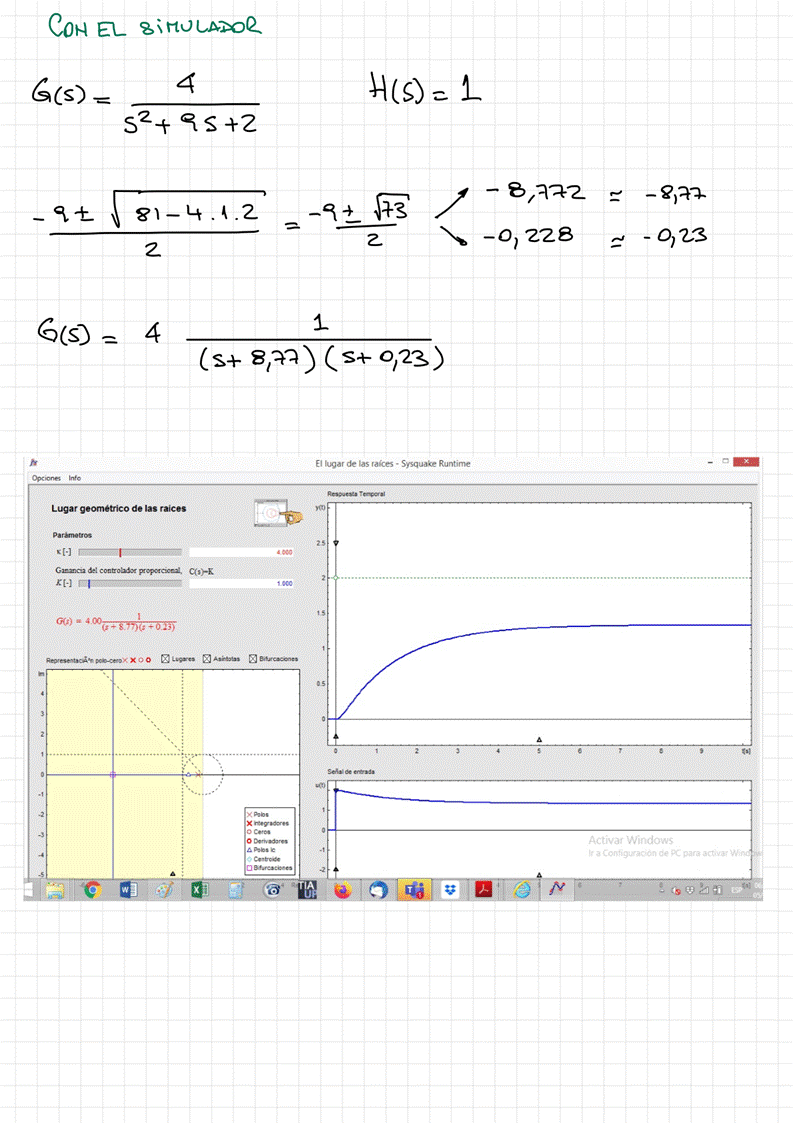 CON EL SIMULADOR
G(s) = 4 / (s² + 9s + 2)    H(s) = 1
(-9 ± √(81 - 4.1.2)) / 2 = (-9 ± √73) / 2
-8,772 ≃ -8,77
-0,228 ≃ -0,23
G(s) = 4 1 / ((s + 8,77)(s + 0,23))
El lugar de las raíces - Sysquake Runtime
Opciones Info
Lugar geométrico de las raíces
Parámetros
κ [-] 4.000
Ganancia del controlador proporcional, C(s)=K
K [-] 1.000
G(s) = 4.00 1 / ((s + 8.77)(s + 0.23))
Representación polo-cero Lugares Asíntotas Bifurcaciones
Im
4
3
2
1
0
-1
-2
-3
-4
-5
Polos
Integradores
Ceros
Derivadores
Polos lc
Centroide
Bifurcaciones
Respuesta Temporal
y(t)
2.5
2
1.5
1
0.5
0
0 1 2 3 4 5 6 7 8 9 t[s]
Señal de entrada
u(t)
1
0
-1
-2
Activar Windows
Ir a Configuración de PC para activar Windows
TIA
UP
ESP